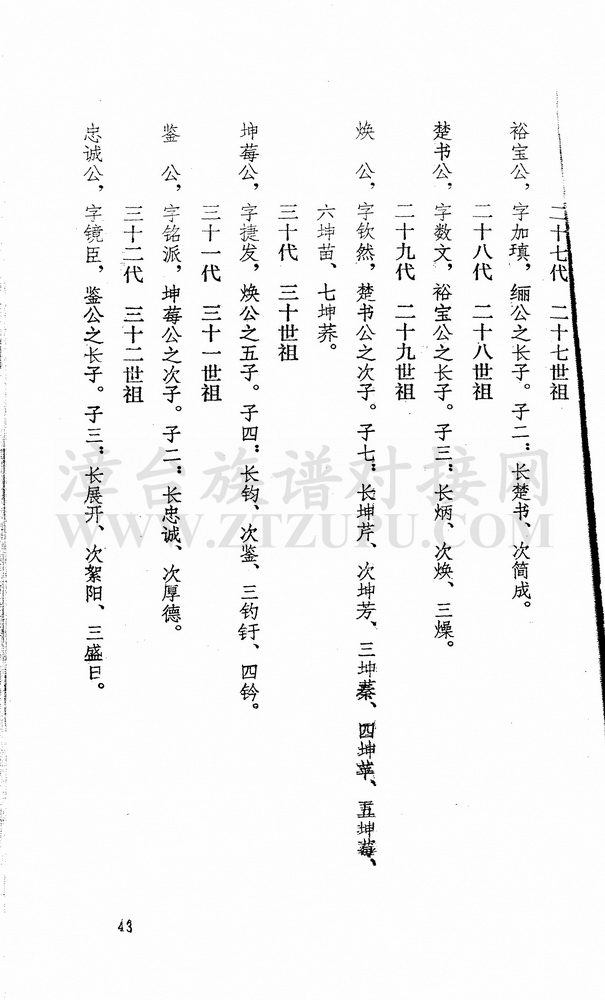 二十七代　二十七世祖
裕宝公，字加瑱，缅公之长子。子二：长楚书、次简成。
二十八代　二十八世祖
楚书公，字数文，裕宝公之长子。子三：长炳、次焕、三燥。
二十九代　二十九世祖
焕　公，字钦然，楚书公之次子。子七：长坤芹、次坤芳、三坤蓁、四坤苹、五坤莓、
六坤苗、七坤荞。
三十代　三十世祖
坤莓公，字捷发，焕公之五子。子四：长钧、次鉴、三钓钎、四钤。
三十一代　三十一世祖
鉴　公，字铭派，坤莓公之次子。子二：长忠诚、次厚德。
三十二代　三十二世祖
忠诚公，字镜臣，鉴公之长子。子三：长展开、次絮阳、三盛日。
43
漳台族谱对接网
WWW.ZTZUPU.COM